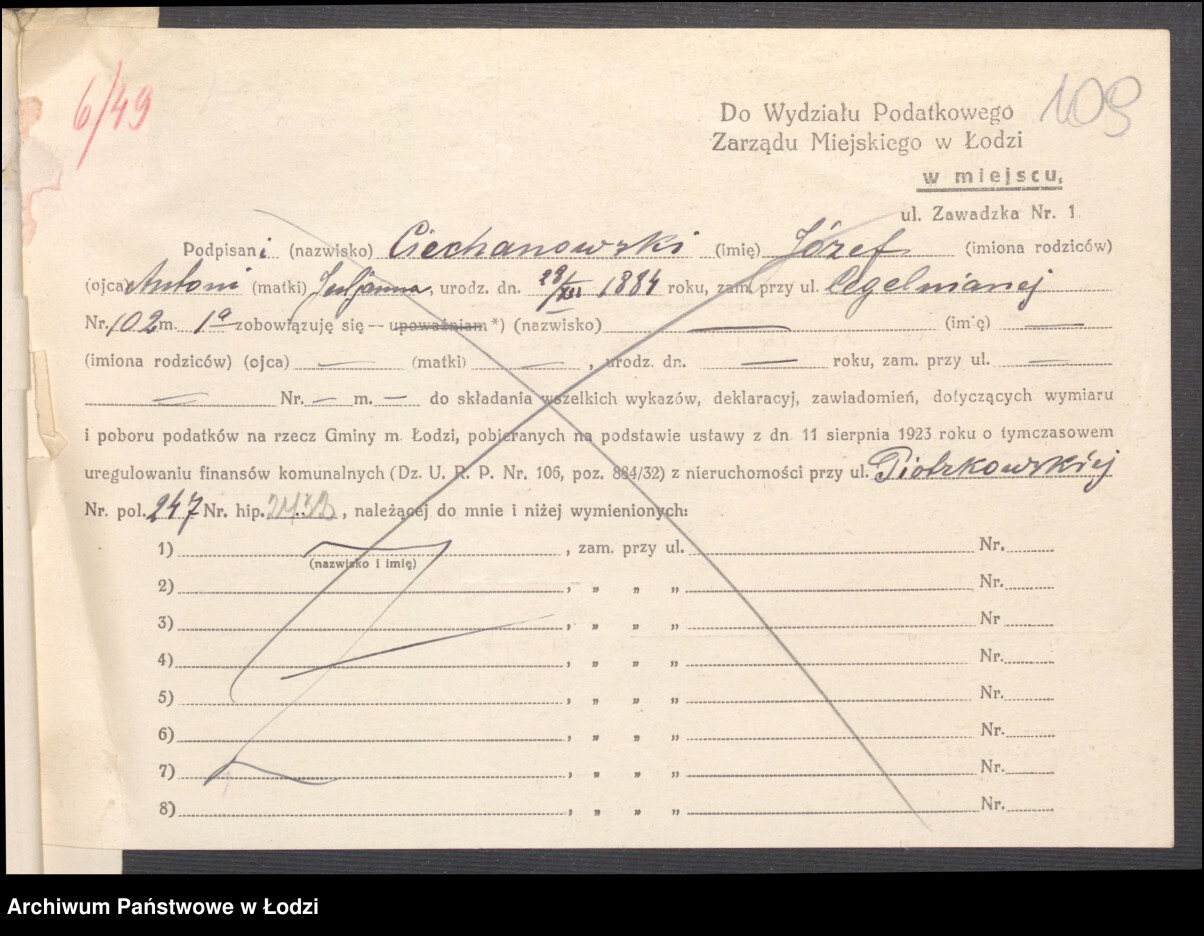 6/49
109
Do Wydziału Podatkowego
Zarządu Miejskiego w Łodzi
w miejscu,
ul. Zawadzka Nr. 1
Podpisani (nazwisko) Ciechanowski (imię) Józef (imiona rodziców)
(ojca) Antoni (matki) Juljanna, urodz. dn. 28/XII 1884 roku, zam. przy ul. Cegelnianej
Nr. 102 m. 1a zobowiązuję się — upoważniam *) (nazwisko) — (imię) —
(imiona rodziców) (ojca) — (matki) — , urodz. dn. — roku, zam. przy ul. —
— Nr. — m. — do składania wszelkich wykazów, deklaracyj, zawiadomień, dotyczących wymiaru
i poboru podatków na rzecz Gminy m. Łodzi, pobieranych na podstawie ustawy z dn. 11 sierpnia 1923 roku o tymczasowem
uregulowaniu finansów komunalnych (Dz. U. R. P. Nr. 106, poz. 884/32) z nieruchomości przy ul. Piotrkowskiej
Nr. pol. 247 Nr. hip. , należącej do mnie i niżej wymienionych:
1) , zam. przy ul. Nr.
(nazwisko i imię)
2) , „ „ „ Nr.
3) , „ „ „ Nr
4) , „ „ „ Nr.
5) , „ „ „ Nr.
6) , „ „ „ Nr.
7) , „ „ „ Nr.
8) , „ „ „ Nr.
Archiwum Państwowe w Łodzi